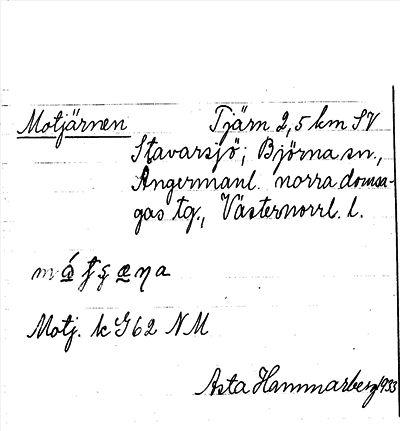 Motjärnen Tjärn 2,5 km SV
Stavarsjö; Björna sn.,
Ångermanl. norra domsa-
gas tg., Västernorrl. l.
Motj. k G62 NM
Asta Hammarberg 1933